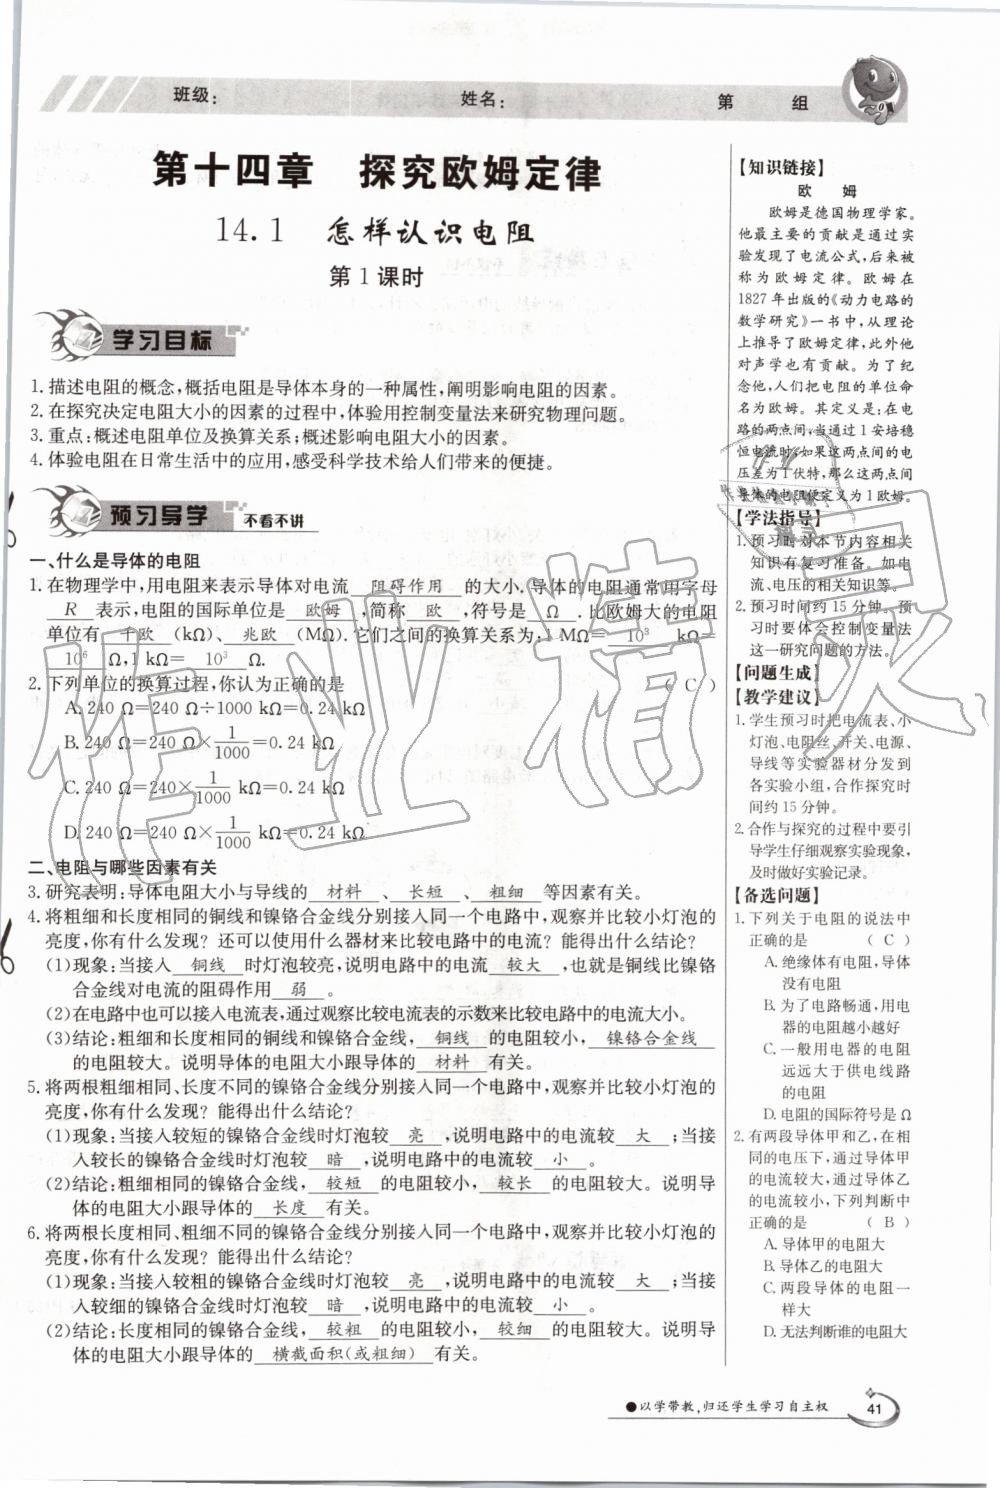 班级： 姓名： 第 组
第十四章 探究欧姆定律
14.1 怎样认识电阻
第1课时
学习目标
1.描述电阻的概念，概括电阻是导体本身的一种属性，阐明影响电阻的因素。
2.在探究决定电阻大小的因素的过程中，体验用控制变量法来研究物理问题。
3.重点：概述电阻单位及换算关系；概述影响电阻大小的因素。
4.体验电阻在日常生活中的应用，感受科学技术给人们带来的便捷。
预习导学 不看不讲
一、什么是导体的电阻
1.在物理学中，用电阻来表示导体对电流 阻碍作用 的大小，导体的电阻通常用字母
R 表示，电阻的国际单位是 欧姆 ，简称 欧 ，符号是 Ω . 比欧姆大的电阻
单位有 千欧 (kΩ)、 兆欧 (MΩ). 它们之间的换算关系为：1 MΩ= 10³ kΩ=
10⁶ Ω，1 kΩ= 10³ Ω.
2.下列单位的换算过程，你认为正确的是 （ C ）
A.240 Ω=240 Ω÷1000 kΩ=0.24 kΩ
B.240 Ω=240 Ω×1/1000=0.24 kΩ
C.240 Ω=240×1/1000 kΩ=0.24 kΩ
D.240 Ω=240 Ω×1/1000 kΩ=0.24 kΩ
二、电阻与哪些因素有关
3.研究表明：导体电阻大小与导线的 材料 、 长短 、 粗细 等因素有关。
4.将粗细和长度相同的铜线和镍铬合金线分别接入同一个电路中，观察并比较小灯泡的
亮度，你有什么发现？还可以使用什么器材来比较电路中的电流？能得出什么结论？
(1)现象：当接入 铜线 时灯泡较亮，说明电路中的电流 较大 ，也就是铜线比镍铬
合金线对电流的阻碍作用 弱 。
(2)在电路中也可以接入电流表，通过观察比较电流表的示数来比较电路中的电流大小。
(3)结论：粗细和长度相同的铜线和镍铬合金线， 铜线 的电阻较小， 镍铬合金线
的电阻较大。说明导体的电阻大小跟导体的 材料 有关。
5.将两根粗细相同、长度不同的镍铬合金线分别接入同一个电路中，观察并比较小灯泡的
亮度，你有什么发现？能得出什么结论？
(1)现象：当接入较短的镍铬合金线时灯泡较 亮 ，说明电路中的电流较 大 ；当接
入较长的镍铬合金线时灯泡较 暗 ，说明电路中的电流较 小 。
(2)结论：粗细相同的镍铬合金线， 较短 的电阻较小， 较长 的电阻较大。说明导
体的电阻大小跟导体的 长度 有关。
6.将两根长度相同、粗细不同的镍铬合金线分别接入同一个电路中，观察并比较小灯泡的
亮度，你有什么发现？能得出什么结论？
(1)现象：当接入较粗的镍铬合金线时灯泡较 亮 ，说明电路中的电流较 大 ；当接
入较细的镍铬合金线时灯泡较 暗 ，说明电路中的电流较 小 。
(2)结论：长度相同的镍铬合金线， 较粗 的电阻较小， 较细 的电阻较大。说明导
体的电阻大小跟导体的 横截面积(或粗细) 有关。
【知识链接】
欧 姆
欧姆是德国物理学家。
他最主要的贡献是通过实
验发现了电流公式，后来被
称为欧姆定律。欧姆在
1827年出版的《动力电路的
数学研究》一书中，从理论
上推导了欧姆定律，此外他
对声学也有贡献。为了纪
念他，人们把电阻的单位命
名为欧姆。其定义是：在电
路的两点间，当通过1安培稳
恒电流时，如果这两点间的电
压差为1伏特，那么这两点间
导体的电阻便定义为1欧姆。
【学法指导】
1.预习时对本节内容相关
知识有复习准备。如电
流、电压的相关知识等。
2.预习时间约15分钟。预
习时要体会控制变量法
这一研究问题的方法。
【问题生成】
【教学建议】
1.学生预习时把电流表、小
灯泡、电阻丝、开关、电源、
导线等实验器材分发到
各实验小组，合作探究时
间约15分钟。
2.合作与探究的过程中要引
导学生仔细观察实验现象，
及时做好实验记录。
【备选问题】
1.下列关于电阻的说法中
正确的是 （ C ）
A.绝缘体有电阻，导体
没有电阻
B.为了电路畅通，用电
器的电阻越小越好
C.一般用电器的电阻
远远大于供电线路
的电阻
D.电阻的国际符号是Ω
2.有两段导体甲和乙，在相
同的电压下，通过导体甲
的电流较大，通过导体乙
的电流较小，下列判断中
正确的是 （ B ）
A.导体甲的电阻大
B.导体乙的电阻大
C.两段导体的电阻一
样大
D.无法判断谁的电阻大
●以学带教，归还学生学习自主权 41
作业精灵